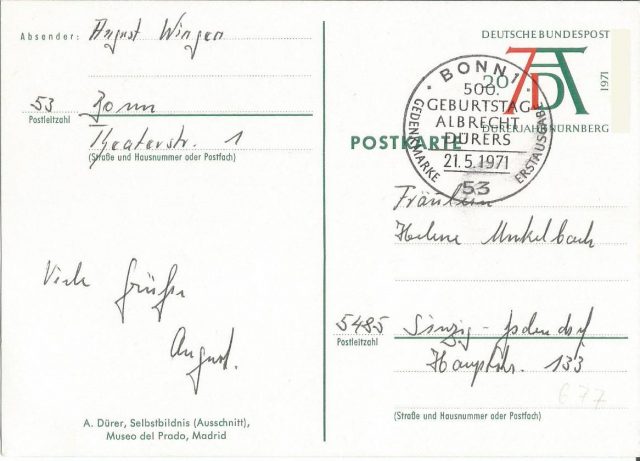 Absender: August Wingen
53 Bonn
Postleitzahl
Theaterstr. 1
(Straße und Hausnummer oder Postfach)
Viele Grüße
August.
A. Dürer, Selbstbildnis (Ausschnitt),
Museo del Prado, Madrid
DEUTSCHE BUNDESPOST
20
1971
DÜRERJAHR NÜRNBERG
BONN 1
500.
GEBURTSTAG
ALBRECHT
DÜRERS
21.5.1971
53
GEDENKMARKE
ERSTAUSGABE
POSTKARTE
Fräulein
Helene Unkelbach
5485 Sinzig-
Postleitzahl
Hauptstr. 133
677
(Straße und Hausnummer oder Postfach)